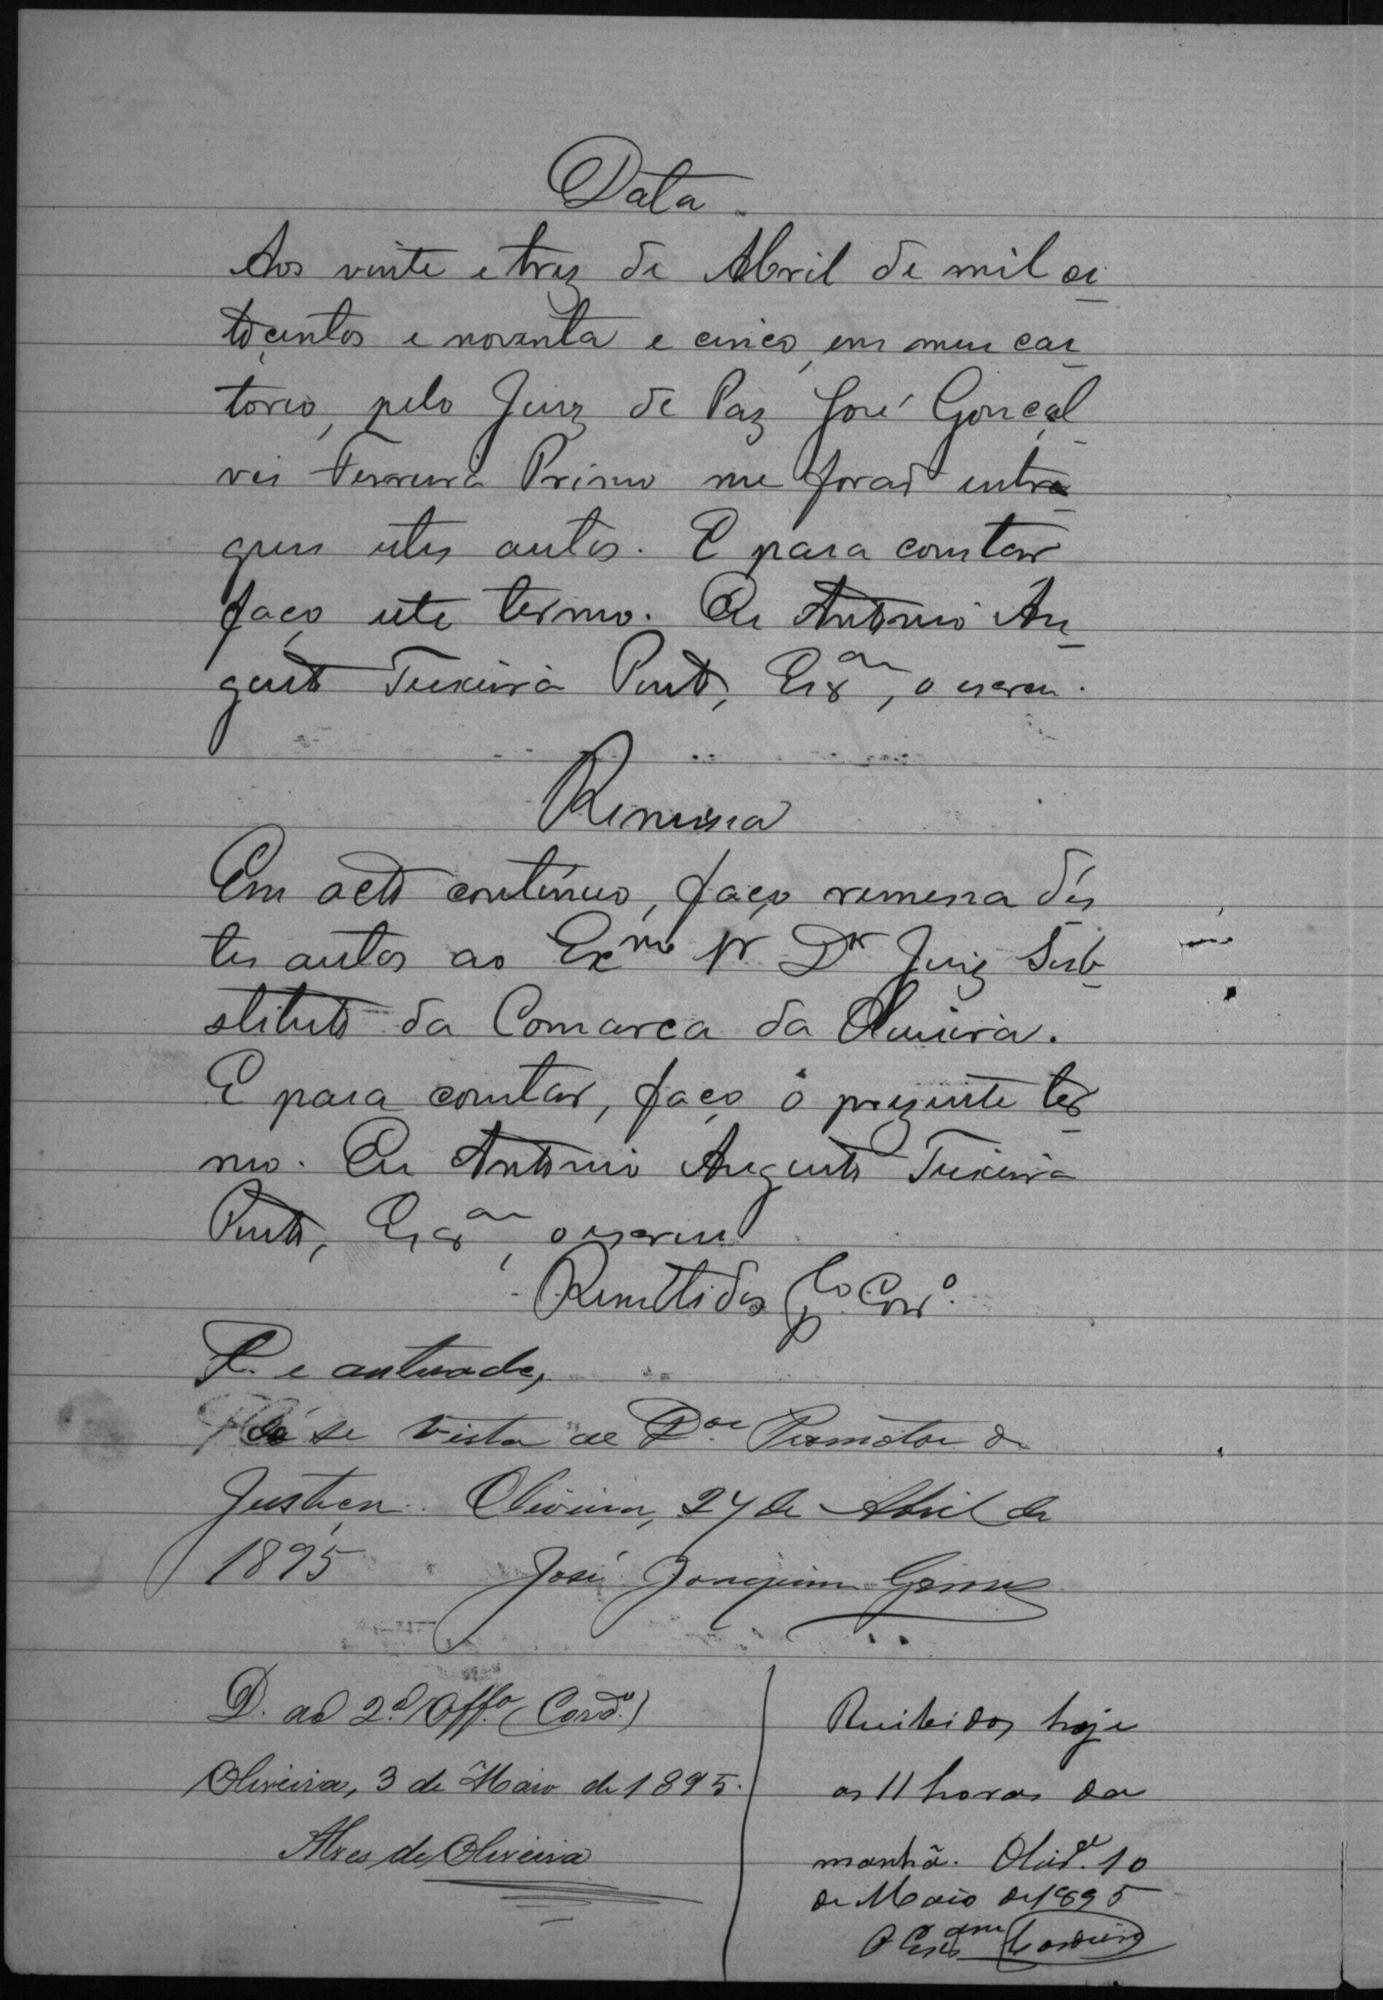 Data
Aos vinte e trez de Abril de mil oi-
tocentos e noventa e cinco, em meu car-
torio, pelo Juiz de Paz José Gonçal-
ves Ferreira Primo me forão entre-
gues estes autos. E para constar
faço este termo. Eu Antonio Au-
gusto Teixeira Pinto, Escr.am, o escrevi.
Remessa
Em acto continuo, faço remessa des-
tes autos ao Exmo Sr Dr Juiz Sub-
stituto da Comarca da Oliveira.
E para constar, faço o prezente ter-
mo. Eu Antonio Augusto Teixeira
Pinto, Escram, o escrevi
Remettidos pelo Corro.
R. e autuada,
dê se vista ao Dor Promotor da
Justiça. Oliveira, 24 de Abril de
1895 José Joaquim Gomes
D. ao 2.º Offo. (Cordo.)
Oliveira, 3 de Maio de 1895.
Alves de Oliveira
Recibidos hoje
as 11 horas da
manhã. Olivra. 10
de Maio de 1895
O Escram Cordeiro